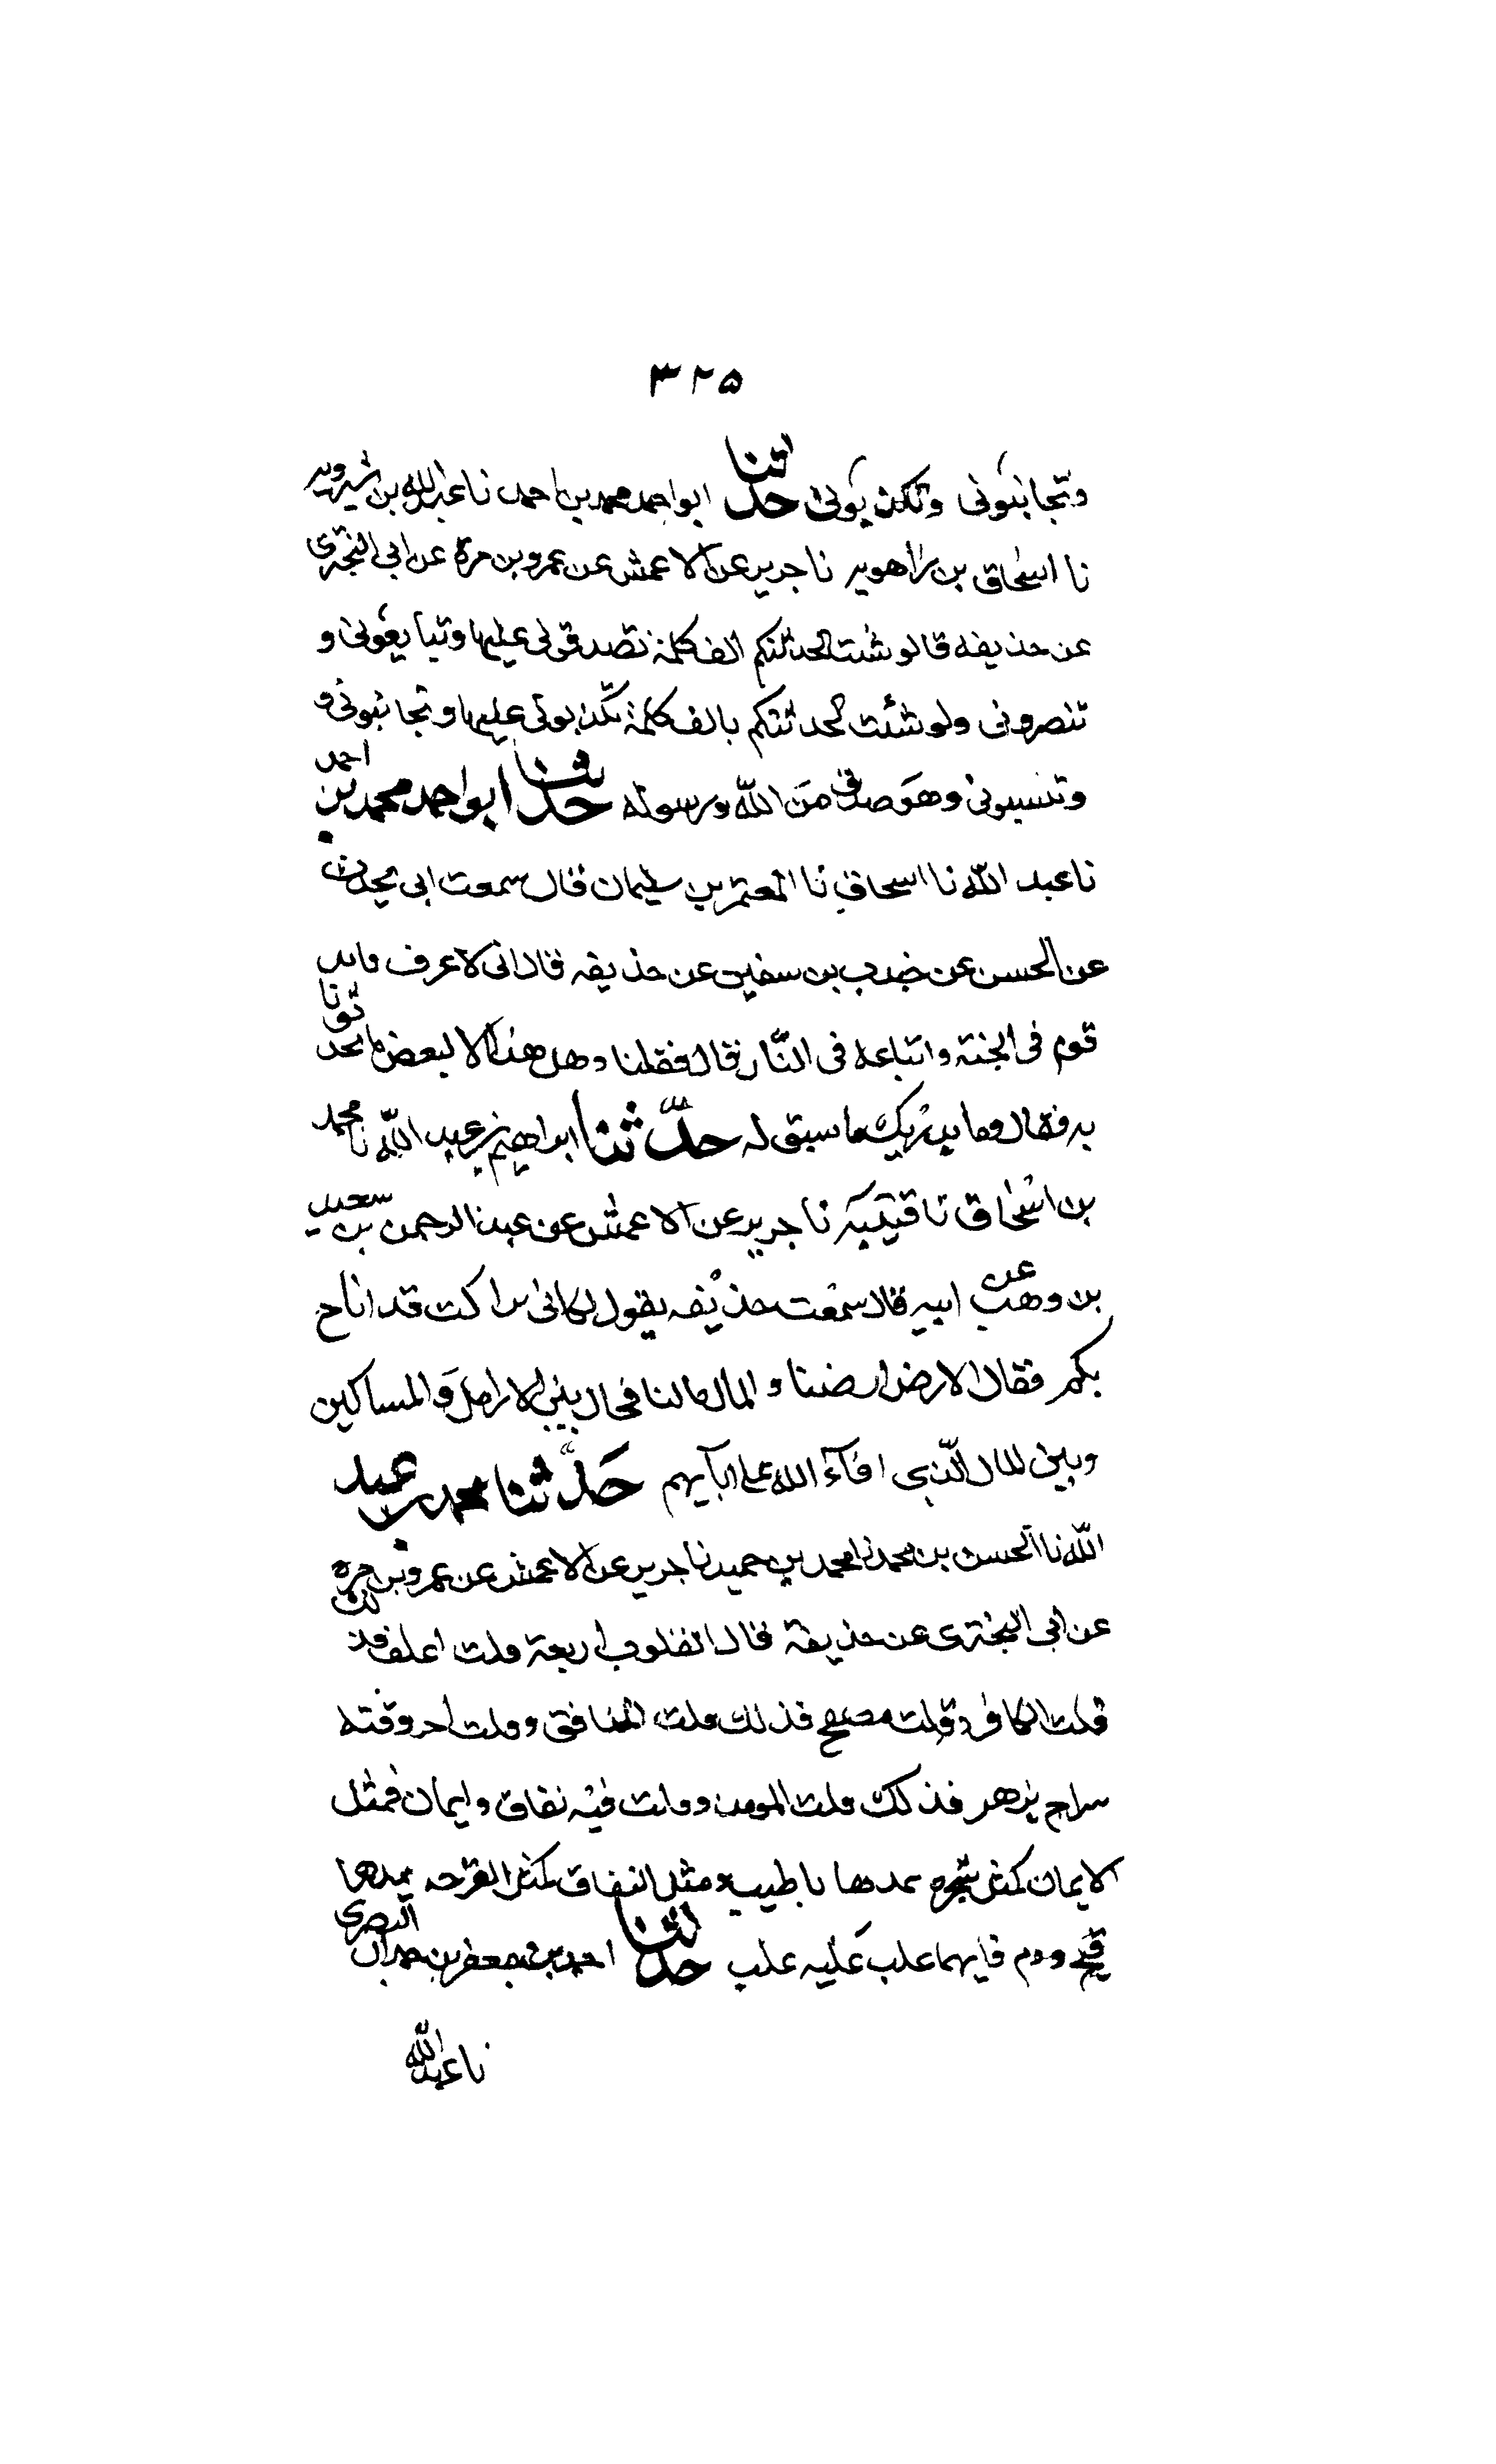 ٣٢٥
وتجانبونی وتکذبونی حدثنا ابو احمد محمد بن احمد نا عبد الله بن شیرویه
نا اسحاق بن راهویه نا جریر عن الاعمش عن عمرو بن مرة عن ابی البختری
عن حذیفه قال لو شئت لحدثتکم الف کلمة تصدقونی علیها وتبایعونی و
تنصرونی ولو شئت لحدثتکم بالف کلمة تکذبونی علیها وتجانبونی و
وتنسبونی وهو صدق من الله ورسوله حدثنا ابو احمد محمد بن احمد
نا عبد الله نا اسحاق نا المعتمر بن سلیمان قال سمعت ابی یحدث
عن الحسن عن جندب بن سفین عن حذیفه قال انی لاعرف قاید
قوم فی الجنة واتباعه فی النار قال فقلنا وهل هذا الا لبعض ما تحدثونا
به فقال وما یدریک ما سبق له حدثنا ابراهیم بن عبد الله نا محمد
بن اسحاق نا قتیبه نا جریر عن الاعمش عن عبد الرحمن بن سعید
بن وهب عن ابیه قال سمعت حذیفه یقول لکانی براکب قد اناخ
بکم فقال الارض ارضنا والمال مالنا فحال بین الارامل والمساکین
وبین المال الذی افآء الله علی ابآیهم حدثنا محمد بن عبد
الله نا الحسن بن محمد نا محمد بن حمید نا جریر عن الاعمش عن عمرو بن مره
عن ابی البختری عن حذیفة قال القلوب اربعة قلب اغلف فذلک
قلب الکافر وقلب مصفح فذلک قلب المنافق وقلب اجرد فیه
سراج یزهر فذلک قلب المومن وقلب فیه نفاق وایمان فمثل
الایمان کمثل شجره یمدها ماء طیب ومثل النفاق کمثل القرحه یمدها
قیح ودم فایهما غلب علیه غلب حدثنا احمد بن جعفر بن حمدان البصری
نا عبد الله